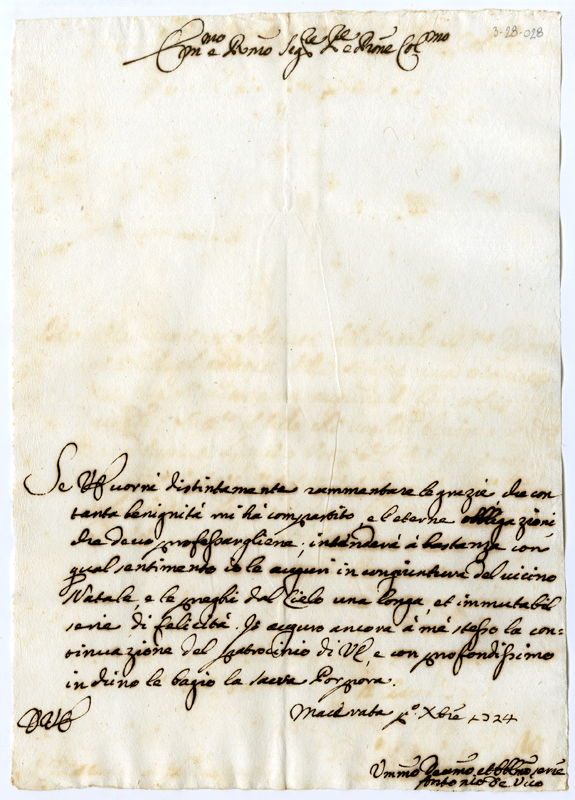 3-28-028
Em̃mo e Rm̃o Sigre Pne e Rñe Colmo
Se VE vorrà distintamente rammentare le grazie, che con
tanta benignità mi hà compartito, e l'eterne obbligazioni,
che devo professargliene; intenderà à bastanza con
qual sentimento io le auguri in congiuntura del vicino
Natale, e le preghi dal Cielo una longa, et immutabil
serie di felicità. Io auguro ancora à me stesso la con-
tinuazione del patrocinio di VE, e con profondissimo
inchino le bagio la sacra Porpora.
Macerata po. Xbre 1724
DVE
Vmmo Devmo, et Obbmo serre
Antonio de Vico